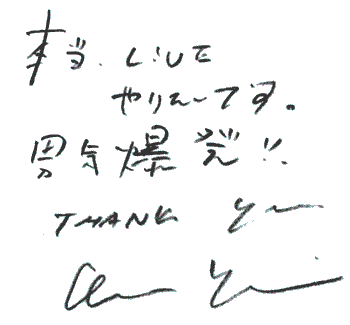 本当、LIVE
やりてーです。
男気爆発!!
THANK You